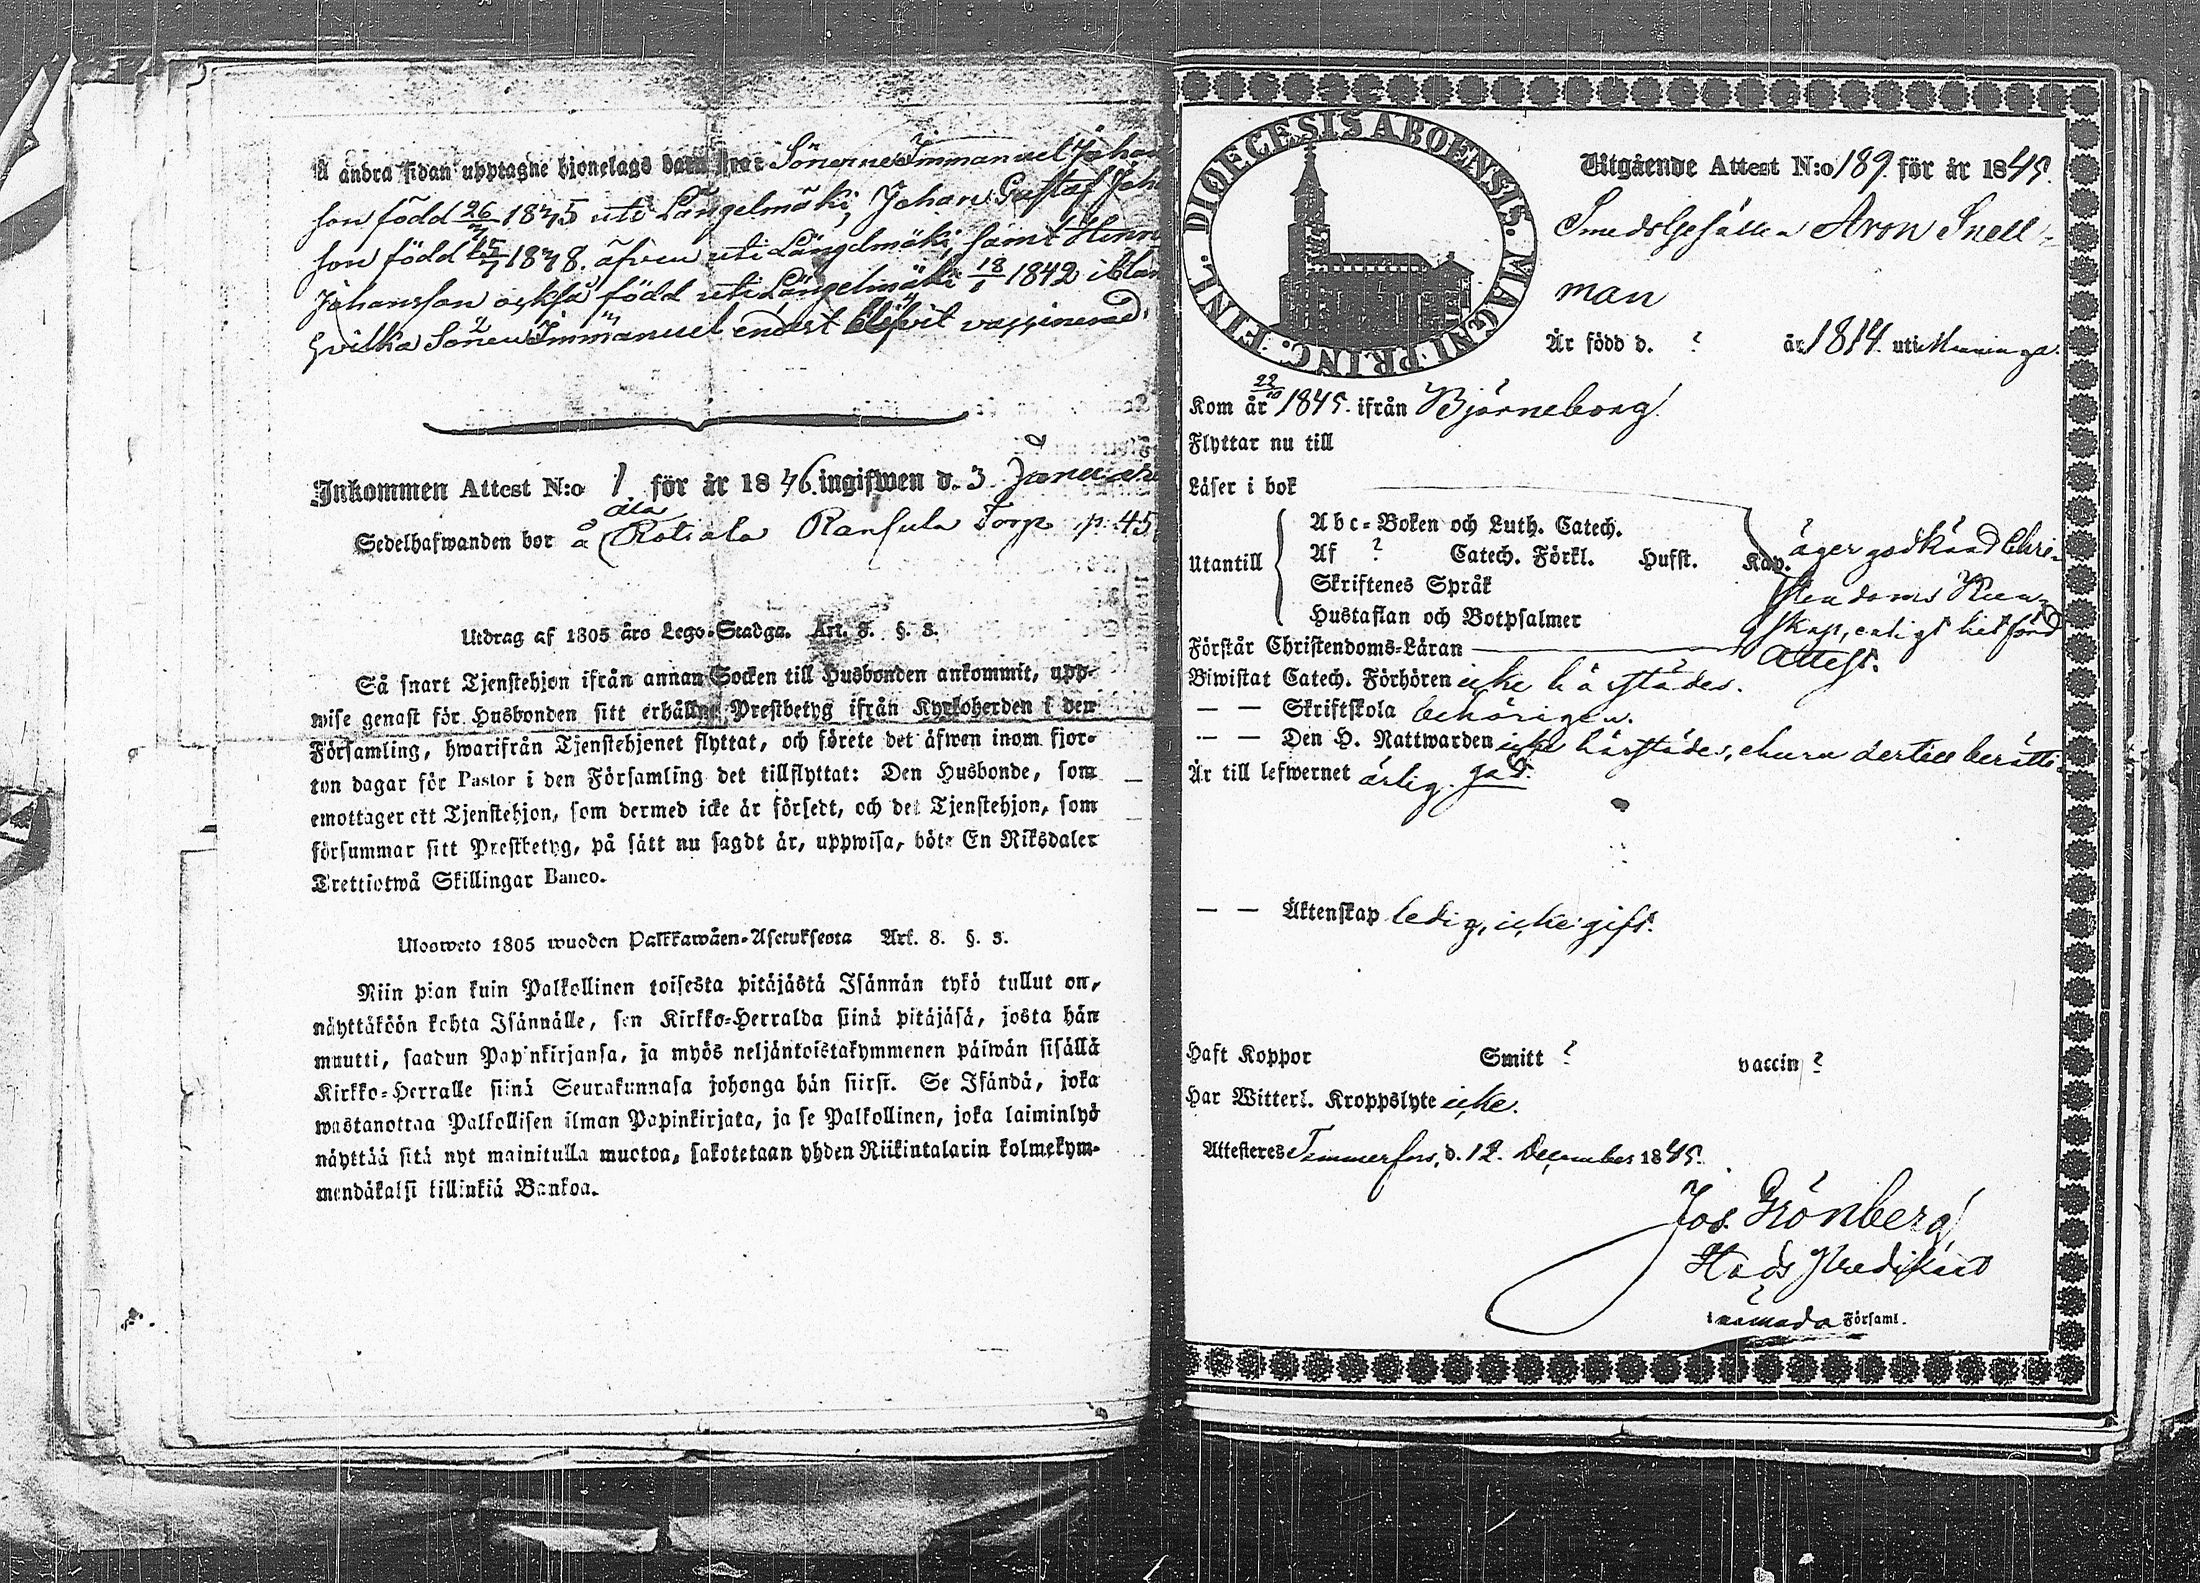 å andra sidan upptagne hjonelags barn äro: Sönerne Immanuel Johan
son född 26/7 1835 uti Längelmäki, Johan Gustaf Joh
son född 15/7 1838. äfven uti Längelmäki, samt Henr
Johansson också född uti Längelmäki 18/1 1842 ibland
hvilka Sönen Immanuel endast blifvit vaccinerad.
Inkommen Attest N:o 1 för år 1846. ingifwen d. 3 Januari
Sedelhafwanden bor å Ala Rotiala Torp p. 45
Utdrag af 1805 års Lego-Stadga. Art. 8. §. 3.
Så snart Tjenstehjon ifrån annan Socken till Husbonden ankommit, upp-
wise genast för Husbonden sitt erhållne Prestbetyg ifrån Kyrkoherden i den
Församling, hwarifrån Tjenstehjonet flyttat, och förete det äfwen inom fjor-
ton dagar för Pastor i den Församling det tillflyttat: Den Husbonde, som
emottager ett Tjenstehjon, som dermed icke är försedt, och det Tjenstehjon, som
försummar sitt Prestbetyg, på sätt nu sagdt är, uppwisa, böte En Riksdaler
Trettiotwå Skillingar Banco.
Ulosweto 1805 wuoden Palkkawäen-Asetuksesta Art. 8. §. 3.
Niin pian kuin Palkollinen toisesta pitäjästä Isännän tykö tullut on,
näyttäköön kohta Isännälle, sen Kirkko-Herralda siinä pitäjäsä, josta hän
muutti, saadun Papinkirjansa, ja myös neljäntoistakymmenen päiwän sisällä
Kirkko-Herralle siinä Seurakunnasa johonga hän siirst. Se Isändä, joka
wastanottaa Palkollisen ilman Papinkirjata, ja se Palkollinen, joka laiminlyö
näyttää sitä nyt mainitulla muotoa, sakotetaan yhden Riikintalarin kolmekym-
mendäkaksi killinkiä Bankoa.
DIOECESIS ABOENSIS. MAGNI PRINC. FINL.
Utgående Attest N:o 189. för år 1845.
Smedsgesällen Aron Snell-
man
Är född d. ? år 1814. uti
Kom år 22/10 1845. ifrån Björneborg.
Flyttar nu till
Läser i bok
Utantill
Abc-Boken och Luth. Catech.
Af ? Catech. Förkl. Hufst. Kap.
Skriftenes Språk
Hustaflan och Botpsalmer
Förstår Christendoms-Läran
äger godkänd Chri-
stendoms Kun-
skap, enligt hitförd
Attest.
Biwistat Catech. Förhören icke härstädes.
— — Skriftskola behörigen.
— — Den H. Nattwarden icke härstädes, ehuru dertill berätti-
gad.
Är till lefwernet ärlig.
— — Äktenskap ledig, icke gift.
Haft Koppor Smitt ? vaccin ?
Har Witterl. Kroppslyte icke.
Attesteres Tammerfors, d. 12. December 1845.
Jos. Grönberg
Predikant
i nämnda Församl.